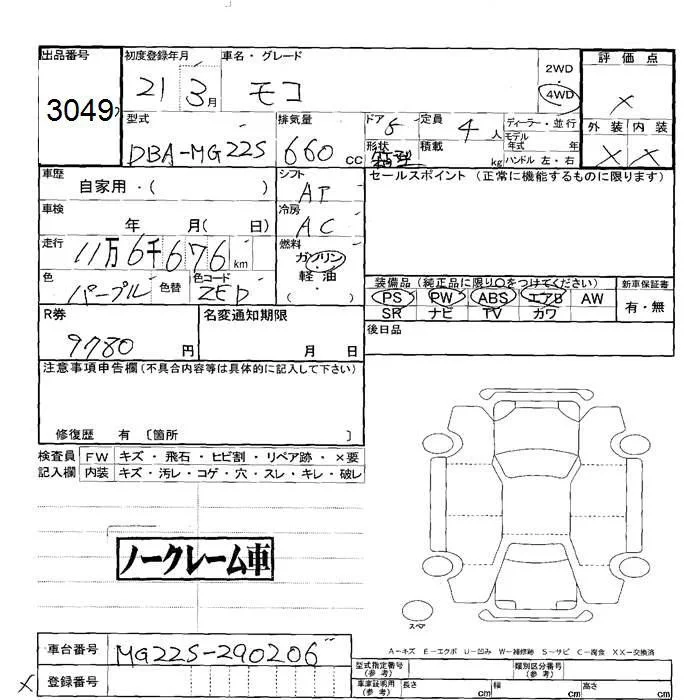 出品番号 初度登録年月 車名・グレード 2WD 評価点
3049 21 3月 モコ 4WD ×
型式 排気量 ドア 5 定員 ディーラー・並行 外装 内装
DBA-MG22S 660cc 形状 積載 4人 モデル年式 年 × ×
kg ハンドル 左・右
車歴 シフト セールスポイント (正常に機能するものに限ります)
自家用・( ) AT
車検 冷房
年 月( 日) AC
走行 燃料
11万6千676km ガソリン
色 色替 色コード 軽油 装備品 (純正品に限り○をつけてください) 新車保証書
パープル ZED ( ) PS PW ABS エアB AW 有・無
R券 名変通知期限 SR ナビ TV カワ
9780円 月 日 後日品
注意事項申告欄(不具合内容等は具体的に記入して下さい)
修復歴 有 〔箇所 〕
検査員 FW キズ・飛石・ヒビ割・リペア跡・×要
記入欄 内装 キズ・汚レ・コゲ・穴・スレ・キレ・破レ
ノークレーム車
スペア
A-キズ E-エクボ U-凹み W-補修跡 S-サビ C-腐食 XX-交換済
車台番号 MG22S-290206 型式指定番号(参考) 類別区分番号(参考)
× 登録番号 車庫証明用(参考) 長さ cm 幅 cm 高さ cm